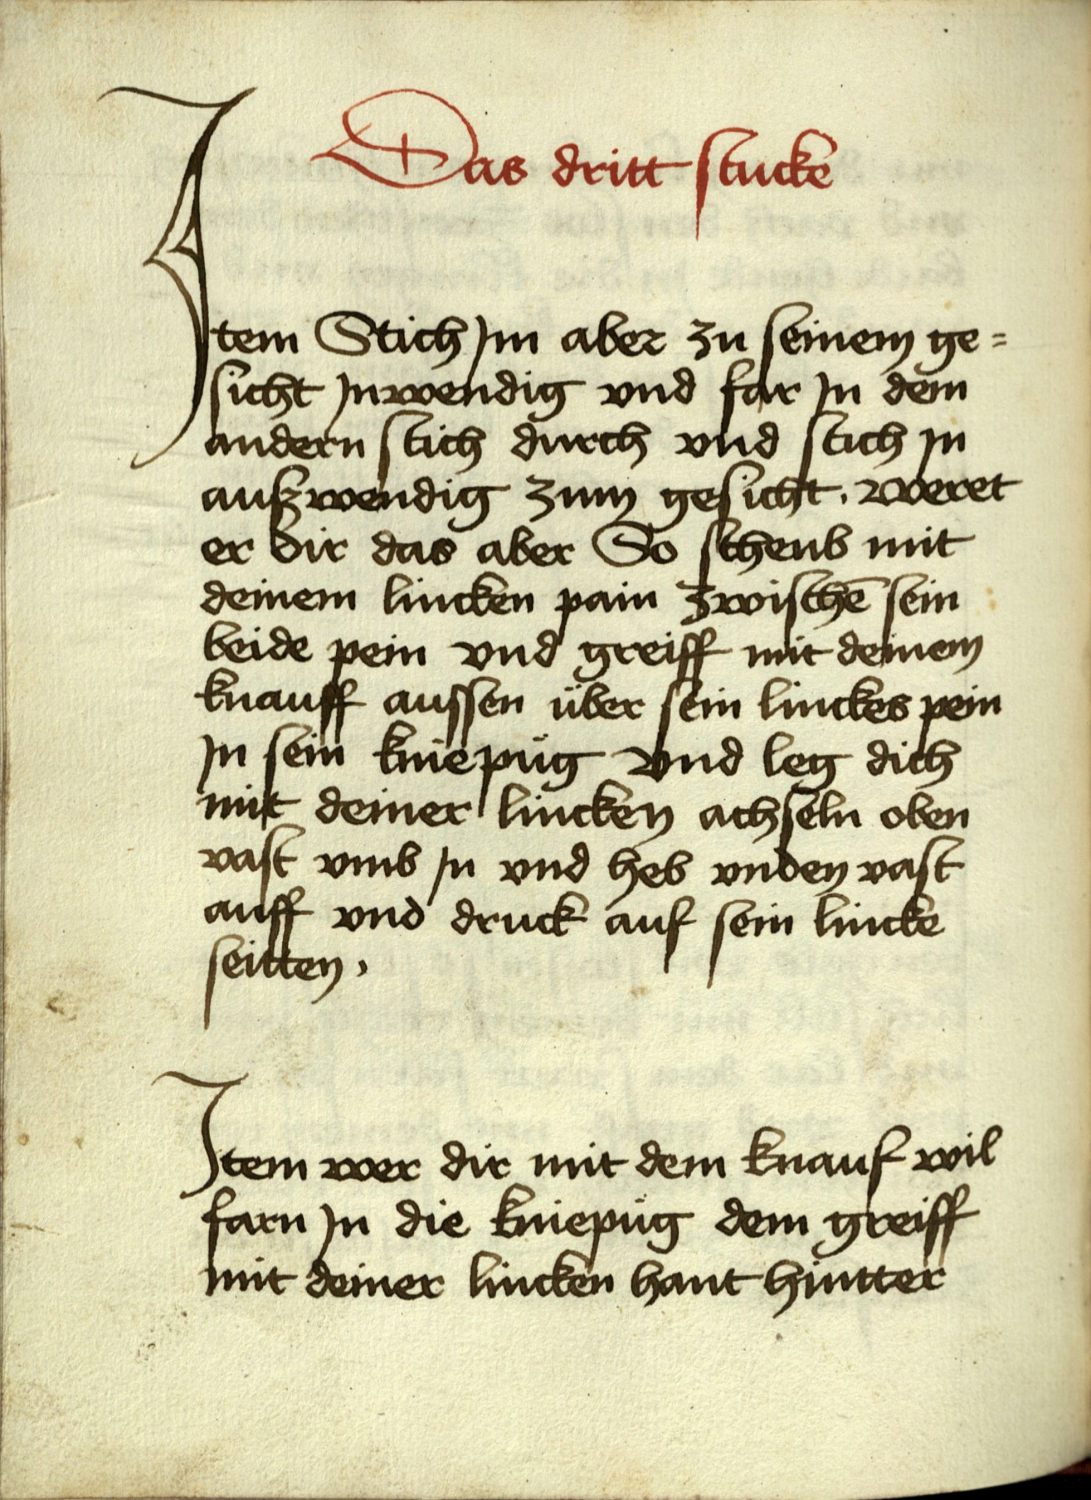 Das dritt stucke
Item Stich Jm aber zu seinem ge=
sicht Jnwendig vnd far Jn dem
andern stich durch vnd stich Jn
außwendig zum gesicht. weret
er dir das aber So scheub mit
deinem lincken pain zwischē sein
beide pein vnd greiff mit deinem
knauff aussen über sein linckes pein
Jn sein kniepüg vnd leg dich
mit deiner lincken achseln oben
vast vmb Jn vnd heb vnden vast
auff vnd druck auf sein lincke
seitten,
Item wer dir mit dem knauf wil
farn Jn die kniepüg dem greiff
mit deiner lincken hant hintter